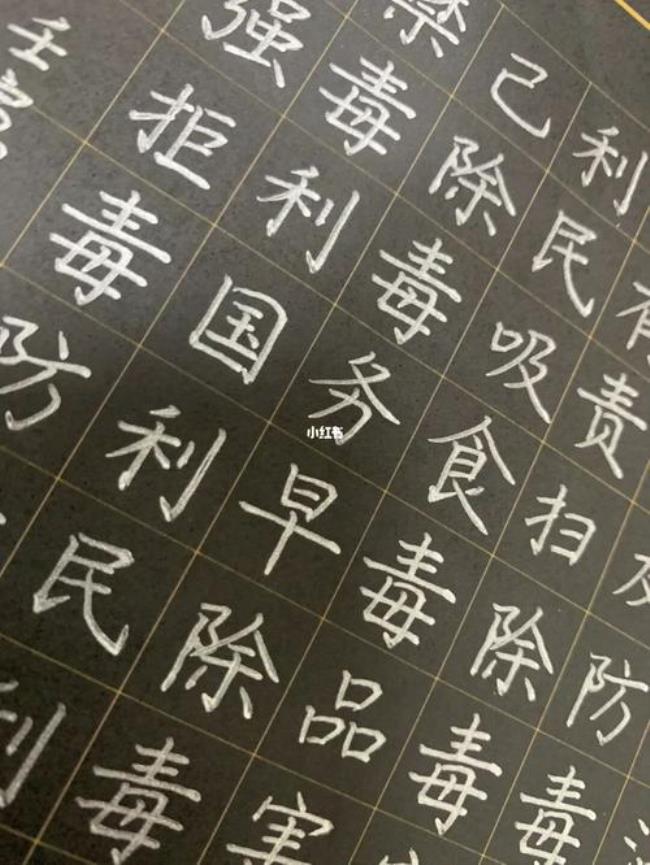 防毒
有责扫除毒
利民吸食毒品害
己除毒务早除毒
禁毒利国利民利
强拒毒防
小红书